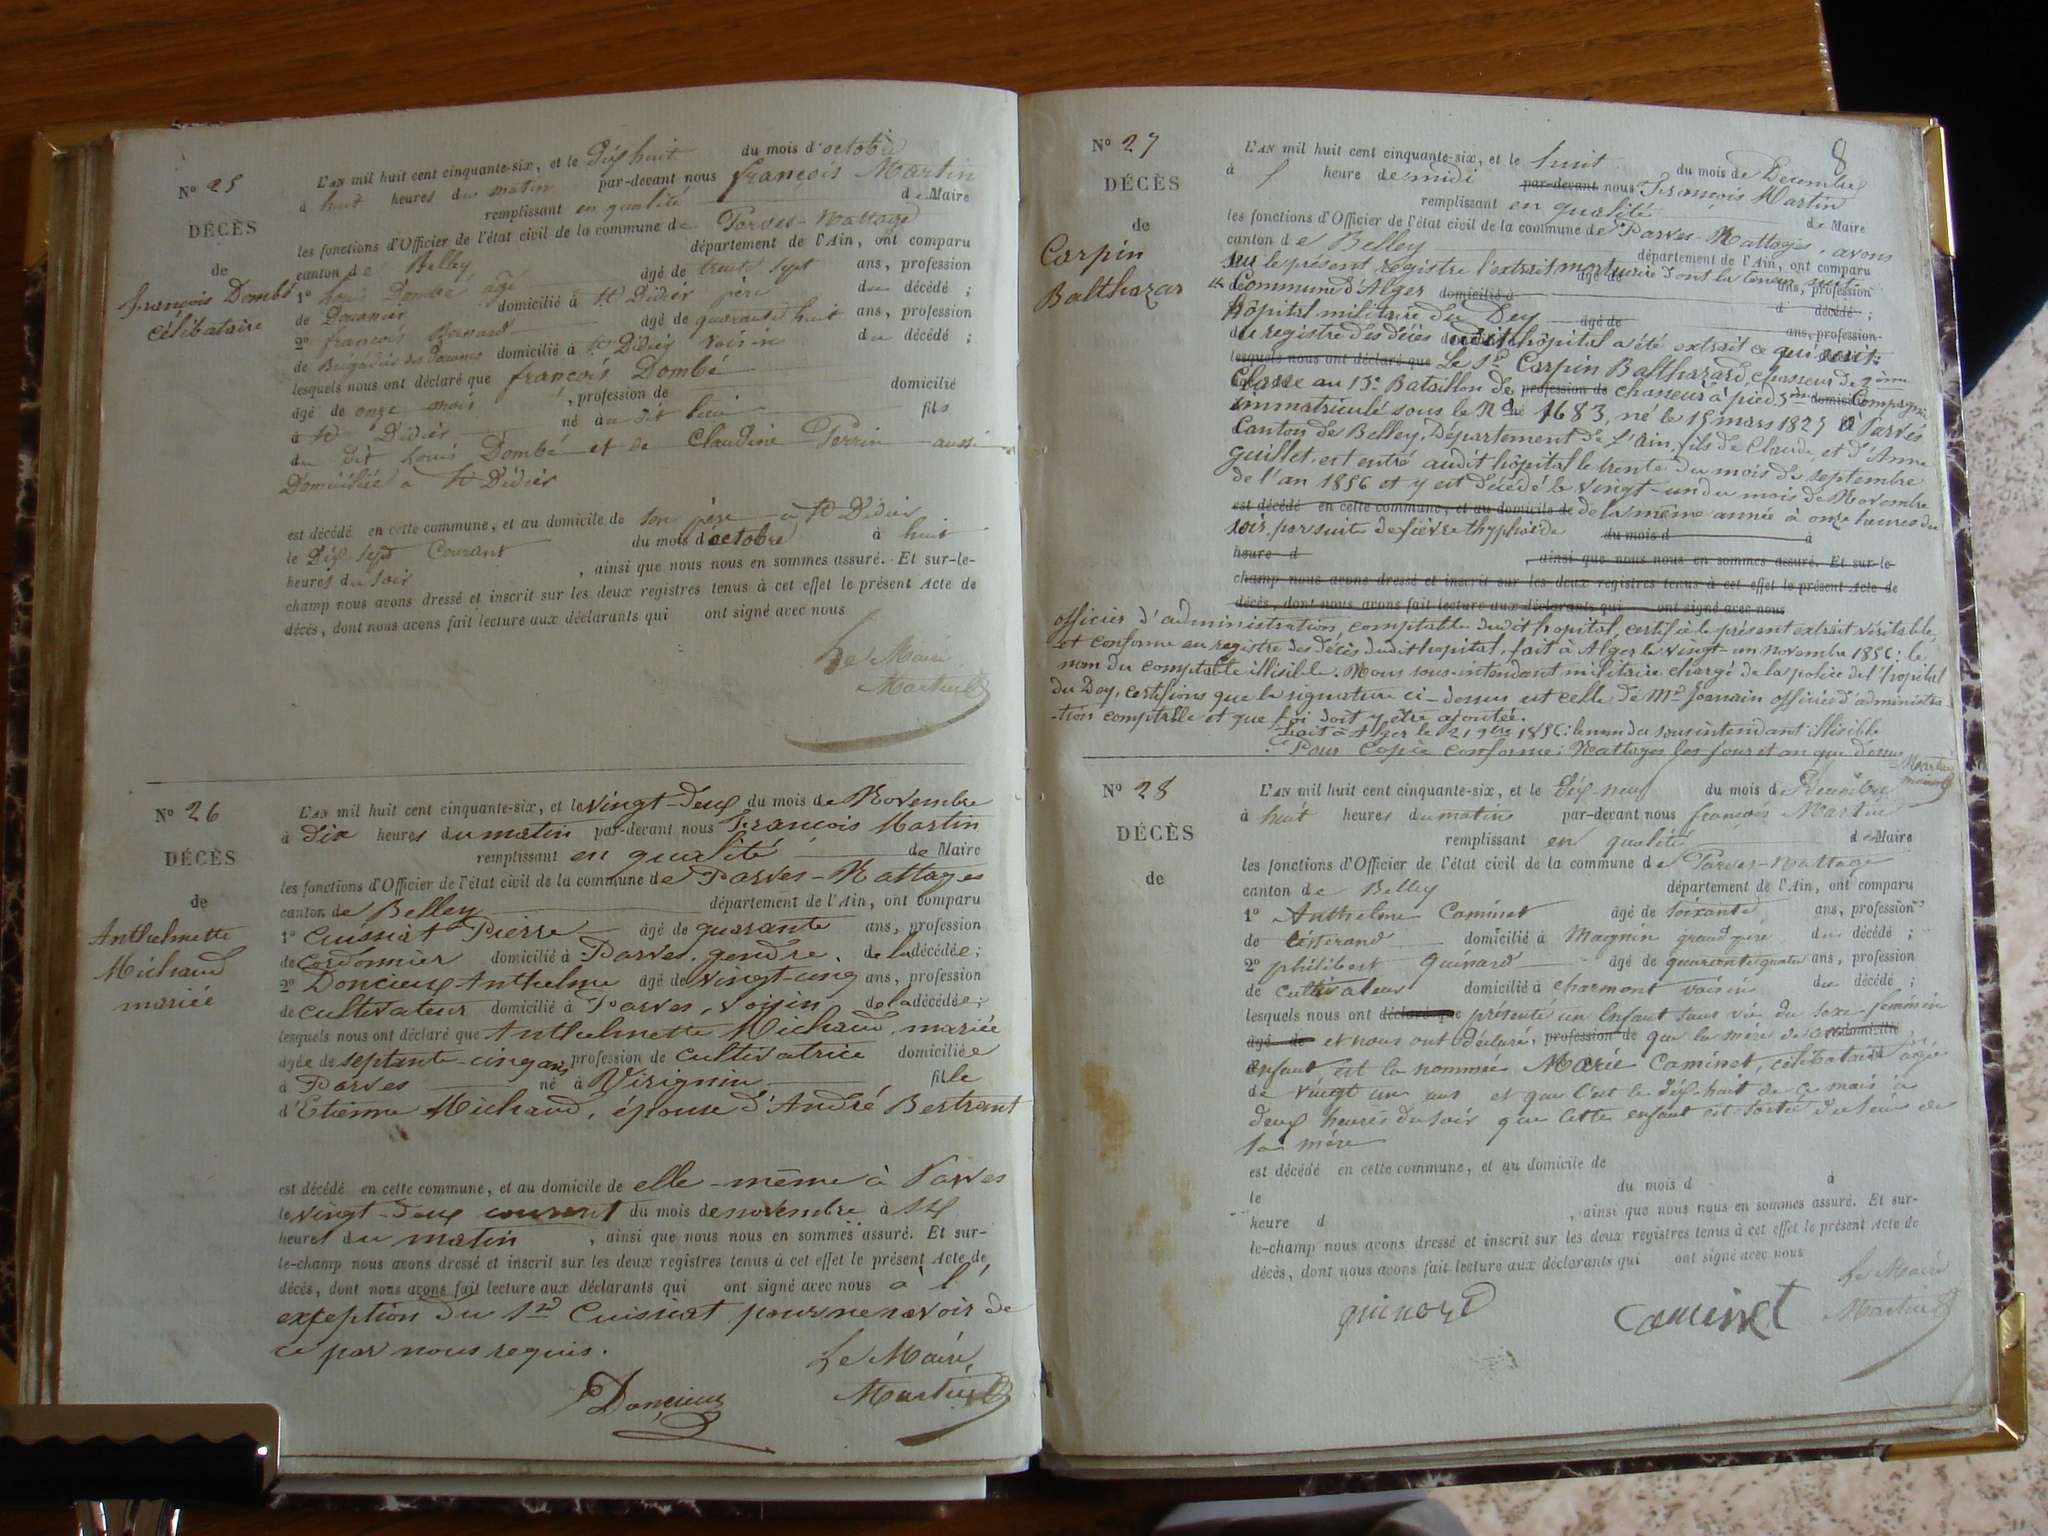 N° 25
DÉCÈS
de
françois Dombé
célibataire
L'AN mil huit cent cinquante-six, et le Dix huit du mois d'octobre
à huit heures du matin par-devant nous françois Martin
remplissant en qualité de Maire
les fonctions d'Officier de l'état civil de la commune de Parves-Nattage
canton de Belley département de l'Ain, ont comparu
1° Louis Dombé âgé âgé de trente sept ans, profession
de Douanier domicilié à St Didier père du décédé ;
2° françois Bernard âgé de quarante huit ans, profession
de Brigadier des Douanes domicilié à St Didier voisin du décédé ;
lesquels nous ont déclaré que françois Dombé
âgé de onze mois , profession de domicilié
à St Didier né au dit lieu fils
du dit Louis Dombé et de Claudine Perrin aussi
Domiciliée à St Didier
est décédé en cette commune, et au domicile de son père à St Didier
le Dix sept Courant du mois d'octobre à huit
heures du soir , ainsi que nous nous en sommes assuré. Et sur-le-
champ nous avons dressé et inscrit sur les deux registres tenus à cet effet le présent Acte de
décès, dont nous avons fait lecture aux déclarants qui ont signé avec nous
Le Maire
Martin
N° 26
DÉCÈS
de
Anthelmette
Michaud
mariée
L'AN mil huit cent cinquante-six, et le vingt-deux du mois de Novembre
à Dix heures du matin par-devant nous François Martin
remplissant en qualité de Maire
les fonctions d'Officier de l'état civil de la commune de Parves-Nattages
canton de Belley département de l'Ain, ont comparu
1° Cuissiat Pierre âgé de quarante ans, profession
de cordonnier domicilié à Parves, gendre, de la décédée ;
2° Doncieux Anthelme âgé de vingt-cinq ans, profession
de cultivateur domicilié à Parves, voisin de la décédée ;
lesquels nous ont déclaré que Anthelmette Michaud, mariée
âgée de septante-cinq ans, profession de cultivatrice domiciliée
à Parves né à Virignin fille
d'Etienne Michaud, épouse d'André Bertrant
est décédé en cette commune, et au domicile de elle-même à Parves
le vingt-deux courant du mois de novembre à six
heures du matin , ainsi que nous nous en sommes assuré. Et sur-
le-champ nous avons dressé et inscrit sur les deux registres tenus à cet effet le présent Acte de
décès, dont nous avons fait lecture aux déclarants qui ont signé avec nous à l'
exception du Sr Cuissiat pour ne savoir de
ce par nous requis.
Le Maire,
Doncieux Martin
8
N° 27
DÉCÈS
de
Carpin
Balthazar
L'AN mil huit cent cinquante-six, et le huit du mois de Décembre
à 1 heure de midi par-devant nous François Martin
remplissant en qualité de Maire
les fonctions d'Officier de l'état civil de la commune de Parves-Nattages, avons
canton de Belley département de l'Ain, ont comparu
sur le présent registre l'extrait mortuaire dont la teneur suit âgé de ans, profession
Commune d'Alger domicilié à d décédé ;
hôpital militaire du Dey âgé de ans, profession
du registre des décès dudit hôpital a été extrait ce qui suit :
lesquels nous ont déclaré que Le Sr Carpin Balthazard, chasseur de 2ème
Classe au 13e Bataillon de profession de chasseur à pied 5me domicilié Compagnie
immatriculé sous le N° né 1683, né le 15 mars 1827 à Parves
Canton de Belley, Département de l'Ain, fils de Claude, et d'Anne
guillet, est entré audit hôpital le trente du mois de septembre
de l'an 1856 et y est décédé le vingt-un du mois de Novembre
est décédé en cette commune, et au domicile de de la même année à onze heures du
soir, par suite de fièvre thyphoïde du mois d à
heure d , ainsi que nous nous en sommes assuré. Et sur-le-
champ nous avons dressé et inscrit sur les deux registres tenus à cet effet le présent Acte de
décès, dont nous avons fait lecture aux déclarants qui ont signé avec nous
officier d'administration comptable dudit hopital, certifie le présent extrait véritable
et conforme au registre des décès dudit hopital, fait à Alger le vingt-un novembre 1856 : le
nom du comptable illisible. Nous sous-intendant militaire chargé de la police de l'hopital
du Dey, certifions que la signature ci-dessus est celle de Mr Joannain officier d'administra-
-tion comptable et que foi doit y être ajoutée.
Fait à Alger le 21 9bre 1856 : le nom du sous intendant illisible
Pour Copie Conforme : Nattages les jour et an que dessus
Martin
maire
N° 28
DÉCÈS
de
L'AN mil huit cent cinquante-six, et le dix neuf du mois de Décembre
à huit heures du matin par-devant nous françois Martin
remplissant en qualité de Maire
les fonctions d'Officier de l'état civil de la commune de Parves-Nattage
canton de Belley département de l'Ain, ont comparu
1° Anthelme Caminet âgé de soixante ans, profession
de tisserand domicilié à Magnin grand père du décédé ;
2° philibert Guinard âgé de quarante quatre ans, profession
de cultivateur domicilié à charmont voisin du décédé ;
lesquels nous ont déclaré que présenté un Enfant sans vie du sexe féminin
âgé de et nous ont déclaré, profession de que la mère de cet domicilié
enfant est la nommée Marie Caminet, célibataire âgée
de vingt un ans et que c'est le dix-huit de ce mois à
deux heures du soir que cette enfant est sortie du sein de
sa mère
est décédé en cette commune, et au domicile de
le du mois d à
heure d , ainsi que nous nous en sommes assuré. Et sur-
le-champ nous avons dressé et inscrit sur les deux registres tenus à cet effet le présent Acte de
décès, dont nous avons fait lecture aux déclarants qui ont signé avec nous
Le Maire
guinard caminet Martin